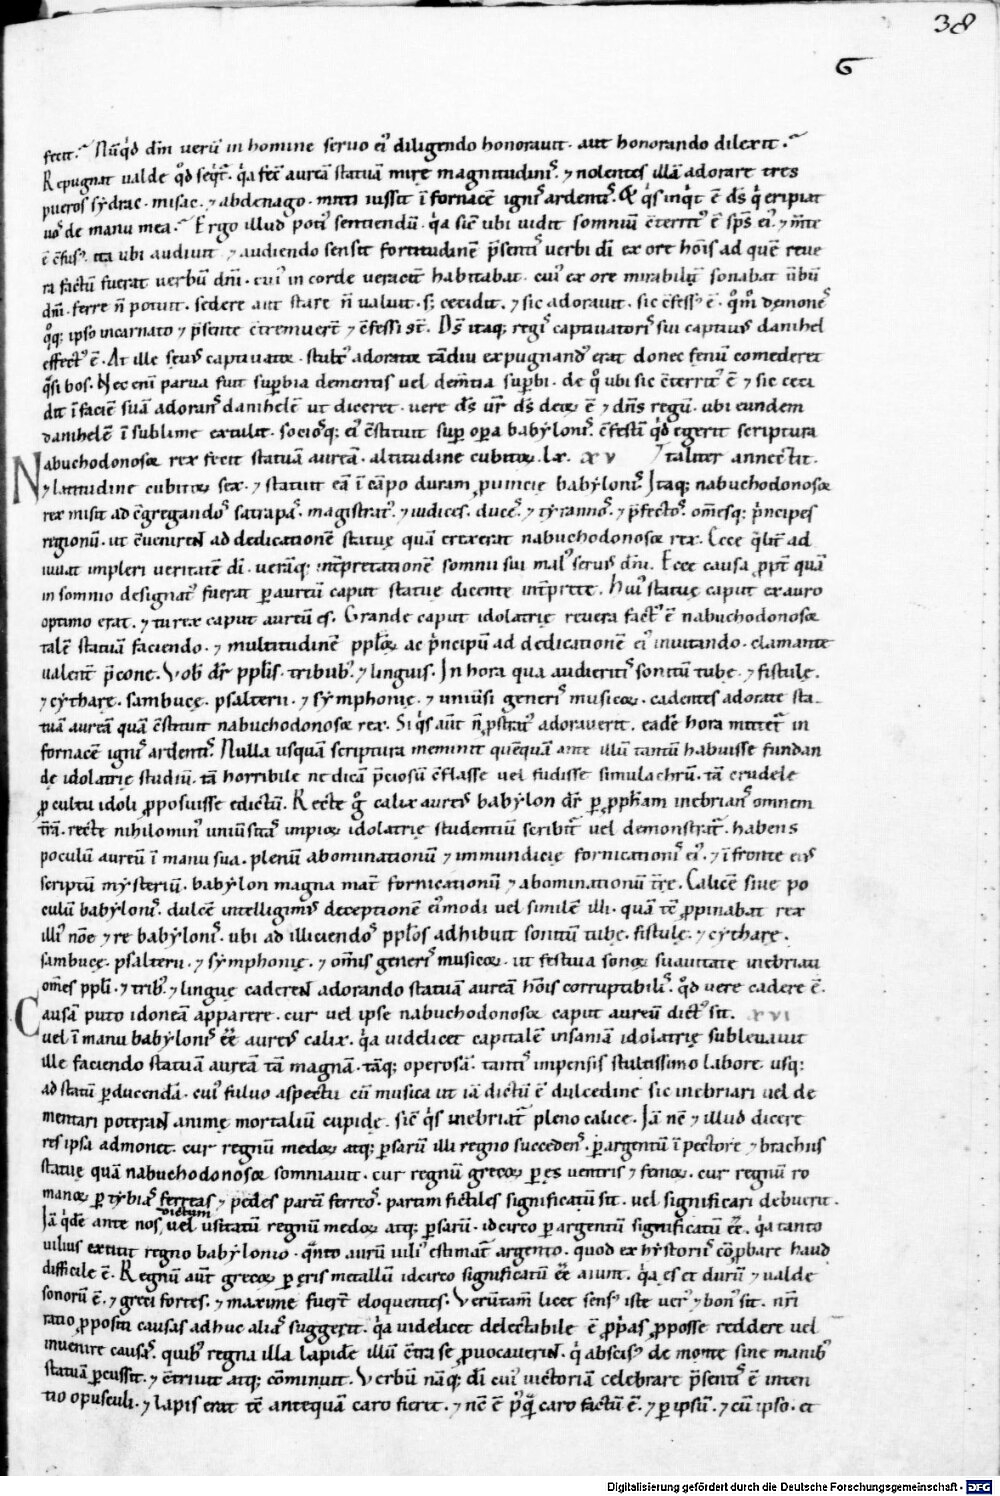 38
6
fecit. Nūqͥd dn̄m uerū in homine seruo eiꝰ diligendo honorauit · aut honorando dilexit.
Repugnat ualde qͦd seqͥt᷑ · qͥa fec̄ aureā statuā mire magnitudinıꝰ · ⁊ nolentes illā adorare tres
pueros sydrac · misac · ⁊ abdenago · mitti iussit ī fornacē igniꝰ ardentiꝰ. Et qͥs inqͥt ē ds̄ qͥ eripiat
uoꝰ de manu mea. Ergo illud potiꝰ sentiendū · qͥa sic̄ ubi uidit somniū c̄territꝰ ē sp̄s eiꝰ · ⁊ m̄te
ē c̄fusꝰ · ita ubi audiuit · ⁊ audiendo sensit fortitudinē p̄sentiꝰ uerbi dī ex ore hōis ad quē reue
ra factū fuerat uerbū dn̄i · cuiꝰ in corde veracit̄ habitabat · cuiꝰ ex ore mirabilit̄ sonabat ūbū
dn̄i · ferre n̄ potuit · sedere aut stare n̄ ualuit · s; cecidit · ⁊ sic adorauit · sic c̄fessꝰ ē · qͦm̄ demoneꝰ
qͦq; ipso incarnato ⁊ p̄sente c̄tremuer̄t ⁊ c̄fessi st̄. Ds̄ itaq; regiꝰ captiuatoriꝰ sui captiuꝰ danihel
effectꝰ ē. At ille seuꝰ captiuator · stultꝰ adorator tādiu expugnandꝰ erat donec fenū comederet
qͣsi bos. Nec enī parua fuit suꝑbia dementis uel dem̄tia suꝑbi · de qͦ ubi sic c̄territꝰ ē ⁊ sic ceci
dit ī faciē suā adoranꝰ danihelē ut diceret · uere ds̄ ur̄ ds̄ deoꝝ ē ⁊ dn̄s regū · ubi eundem
danihelē ī sublime extulit · socioꝰq; eiꝰ c̄stituit suꝑ oꝑa babyloniꝰ c̄festī qͥd egerit scriptura
Nabuchodonosor rex fecit statuā aureā · altitudine cubitoꝝ · lx · xv taliter annectit.
⁊ latitudine cubitoꝝ sex · ⁊ statuit eā ī cāpo duram ꝓuincie babyloniꝰ. Itaq; nabuchodonosor
rex misit ad c̄gregandoꝰ satrapaꝰ · magistratꝰ · ⁊ iudices · duceꝰ · ⁊ tyrannoꝰ · ⁊ p̄fectoꝰ · om̄esq; pͥncipes
regionū · ut c̄uenirent ad dedicationē statue quā erexerat nabuchodonosor rex. Ecce qͣlit̄ ad
iuuat impleri ueritatē dī · uerāq; int̄pretationē somnii sui malꝰ seruꝰ dn̄i. Ecce causa ꝓpt̄ quā
in somnio designatꝰ fuerat ꝑ aureū caput statue dicente int̄prete. Huiꝰ statue caput ex auro
optimo erat · ⁊ tu rex caput aureū es. Grande caput idolatrie reuera factꝰ ē nabuchodonosor
talē statuā faciendo · ⁊ multitudinē pploꝝ ac pͥncipū ad dedicationē eiꝰ inuitando · clamante
ualent̄ p̄cone. Vob̄ dr̄ pplis · tribubꝰ · ⁊ linguis. In hora qua audieritiꝰ sonitū tube · ⁊ fistule ·
⁊ cythare · sambuce · psalterii · ⁊ symphonie · ⁊ uniūsi generiꝰ musicoꝝ · cadentes adorate sta
tuā aureā quā c̄stituit nabuchodonosor rex. Si qͥs aūt n̄ ꝓstratꝰ adorauerit · eadē hora mittet᷑ in
fornacē igniꝰ ardentiꝰ. Nulla usquā scriptura meminit quēquā ante illū tantū habuisse fundan
de idolatrie studiū · tā horribile ne dicā p̄ciosū c̄flasse uel fudisse simulachrū · tā crudele
ꝓ cultu idoli ꝓposuisse edictū. Recte gͦ calix aureꝰ babylon dr̄ ꝑ ꝓphām inebrianꝰ omnem
t̄rā · recte nihilominꝰ uniūsitaꝰ impioꝝ idolatrie studentiū scribit᷑ uel demonstrat᷑ · habens
poculū aureū ī manu sua · plenū abominationū ⁊ immundicie fornicationiꝰ eiꝰ · ⁊ ī fronte eiꝰ
scriptū mysteriū · babylon magna mat̄ fornicationū ⁊ abominationū t̄re. Calicē siue po
culū babyloniꝰ · dulcē intelligimꝰ deceptionē eiꝰmodi uel similē illi · quā tc̄ ꝓpinabat rex
illiꝰ nōe ⁊ re babyloniꝰ · ubi ad illiciendoꝰ pplos adhibuit sonitū tube · fistule · ⁊ cythare ·
sambuce · psalterii · ⁊ symphonie · ⁊ om̄is generiꝰ musicoꝝ · ut festiua sonoꝝ suauitate inebriati
om̄es ppli · ⁊ tribꝰ · ⁊ lingue caderent adorando statuā aureā hōis corruptibiliꝰ · qͦd uere cadere ē.
Causā puto idoneā apparere · cur uel ipse nabuchodonosor caput aureū dictꝰ sit. xvi
uel ī manu babyloniꝰ ēe aureꝰ calix · qͥa uidelicet capitalē insaniā idolatrie subleuauit
ille faciendo statuā aureā tā magnā · tāq; operosā · tantiꝰ impensis stultissimo labore · usq;
ad statū ꝑducendā · cuiꝰ fuluo aspectu cū musica ut iā dictū ē dulcedine sic inebriari uel de
mentari poterant anime mortaliū cupide · sic̄ qͥs inebriat᷑ pleno calice. Iā nc̄ ⁊ illud dicere
res ipsa admonet · cur regnū medoꝝ atq; ꝑsarū illi regno succedenꝰ · ꝑ argentū ī pectore ⁊ brachiis
statue quā nabuchodonosor somniauit · cur regnū grecoꝝ ꝑ es uentris ⁊ femoꝝ · cur regnū ro
manoꝝ ꝑ tybiaꝰ ferreas ⁊ pedes partī ferreoꝰ · partim fictiles significatū sit · uel significari debuerit.
Iā qͥdē ante nos dictum uel usitatū regnū medoꝝ atq; ꝑsarū · idcirco ꝑ argentū significatū ēe · qͥa tanto
uilius extitit regno babylonio · qͣnto aurū uiliꝰ estimat᷑ argento · quod ex hystoriiꝰ cōprobare haud
difficile ē. Regnū aūt grecoꝝ ꝑ eris metallū idcirco significatū ēe aiunt · qͥa es et durū ⁊ ualde
sonorū ē · ⁊ greci fortes · ⁊ maxime fuer̄t eloquentes. Verūtam̄ licet sensꝰ iste uerꝰ ⁊ bonꝰ sit · nr̄i
ratio ꝓpositi causas adhuc aliaꝰ suggerit · qͥa uidelicet delectabile ē ꝓpͥas ꝓposse reddere uel
inuenire causaꝰ · quibꝰ regna illa lapidē illū c̄tra se ꝓuocauerint · qͥ abscisꝰ de monte sine manibꝰ
statuā ꝑcussit · ⁊ c̄triuit atq; cōminuit. Verbū nāq; dī cuiꝰ uictoriā celebrare p̄sentiꝰ ē inten
tio opusculi · ⁊ lapis erat tc̄ antequā caro fieret · ⁊ nc̄ ē pͥꝰqͣ caro factū ē · ⁊ ꝑ ipsū · ⁊ cū ipso · et
Digitalisierung gefördert durch die Deutsche Forschungsgemeinschaft - DFG